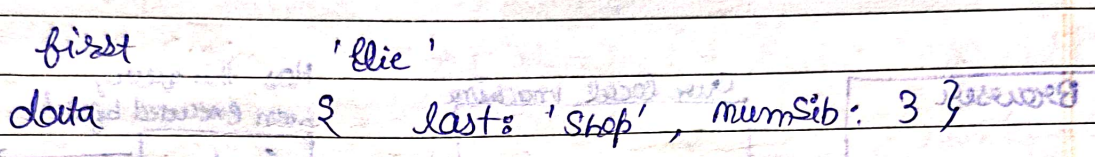 first 'Elie'
data { last: 'Shop', numSib: 3 }